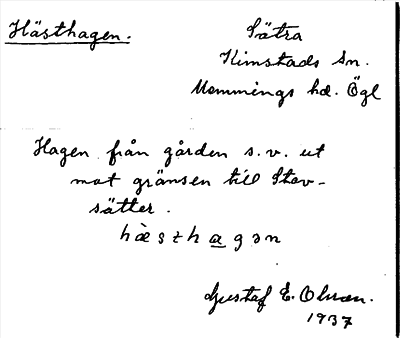 Hästhagen.
Sätra
Kimstads sn.
Memmings hd. Ögl
Hagen från gården s.v. ut
mot gränsen till Stav-
sätter.
hæ̀sthagən
Gustaf E. Olsson.
1937